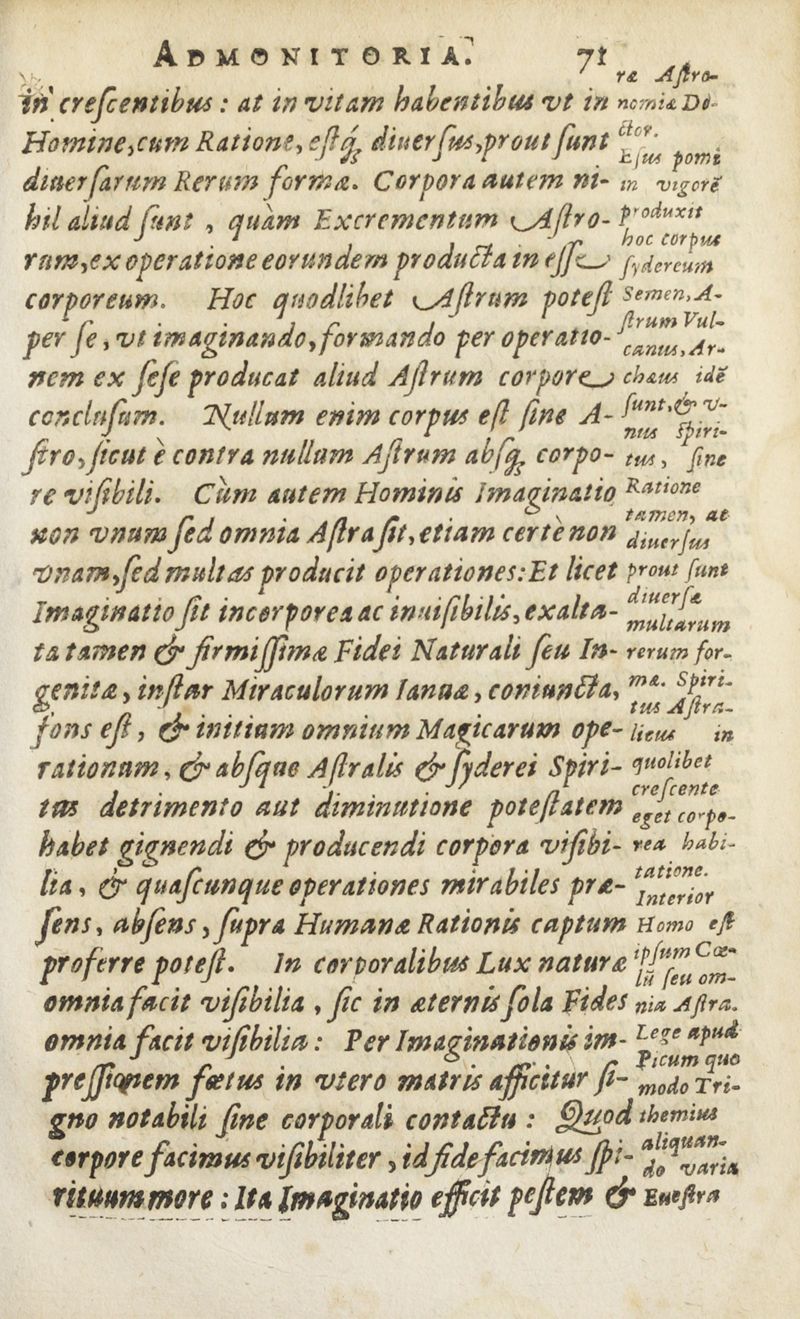 ADMONITORIA. 71
in creſcentibus : at in vitam habentibus vt in
Homine,cum Ratione, eſtq́; diuerſus,prout ſunt
diuerſarum Rerum formæ. Corpora autem ni-
hil aliud ſunt , quàm Excrementum Aſtro-
rum,ex operatione eorundem producta in eſſe
corporeum. Hoc quodlibet Aſtrum poteſt
per ſe , vt imaginando,formando per operatio-
nem ex ſeſe producat aliud Aſtrum corpore
concluſum. Nullum enim corpus eſt ſine A-
ſtro,ſicut è contra nullum Aſtrum abſq; corpo-
re viſibili. Cùm autem Hominis Imaginatio
non vnum ſed omnia Aſtra ſit, etiam certè non
vnam,ſed multas producit operationes:Et licet
Imaginatio ſit incorporea ac inuiſibilis, exalta-
ta tamen & firmiſſimæ Fidei Naturali ſeu In-
genitæ, inſtar Miraculorum Ianuæ, coniuncta,
fons eſt, & initium omnium Magicarum ope-
rationum, & abſque Aſtralis & ſyderei Spiri-
tus detrimento aut diminutione poteſtatem
habet gignendi & producendi corpora viſibi-
lia, & quaſcunque operationes mirabiles præ-
ſens, abſens, ſupra Humanæ Rationis captum
proferre poteſt. In corporalibus Lux naturæ
omnia facit viſibilia , ſic in æternis ſola Fides
omnia facit viſibilia: Per Imaginationis im-
preſſionem fœtus in vtero matris afficitur ſi-
gno notabili ſine corporali contactu : Quod
corpore facimus viſibiliter , id fide facimus ſpi-
rituum more : Ita Imaginatio efficit peſtem &
ræ Aſtro-
nomiæ Do-
ctor.
Eſus pomi
in vigorẽ
produxit
hoc corpus
ſydereum
Semen, A-
ſtrum Vul-
canus, Ar-
chæus idẽ
ſunt,& v-
nus Spiri-
tus, ſine
Ratione
tamen, at
diuerſus
prout ſunt
diuerſæ
multarum
rerum for-
mæ. Spiri-
tus Aſtra-
licus in
quolibet
creſcente
eget corpo-
rea habi-
tatione.
Interior
Homo eſt
ipſum Cœ-
lũ ſeu om-
nia Aſtra.
Lege apud
Picum quo
modo Tri-
themius
aliquan-
do varia
Eueſtra